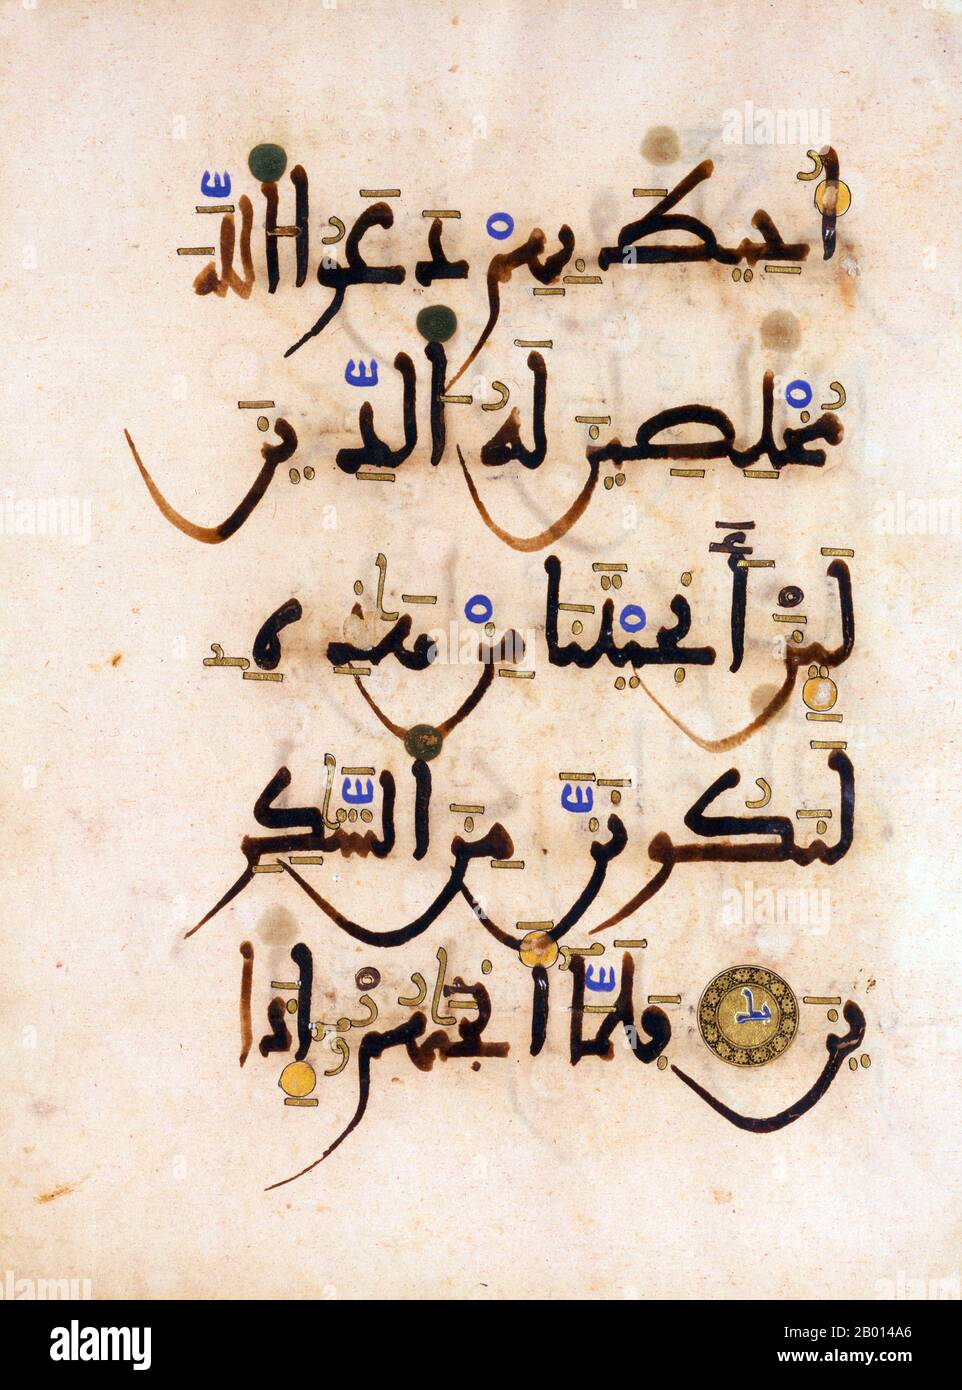 أُحِيطَ بِهِمْ دَعَوُا اللَّهَ
مُخْلِصِينَ لَهُ الدِّينَ
لَئِنْ أَنجَيْتَنَا مِنْ هَٰذِهِ
لَنَكُونَنَّ مِنَ الشَّٰكِرِ
ينَ فَلَمَّا أَنجَىٰهُمْ إِذَا
alamy
Image ID: 2B014A6
www.alamy.com